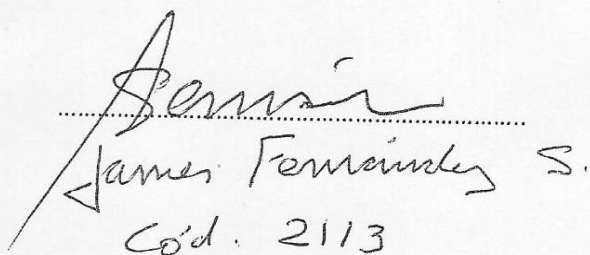 James Fernández S.
Cód. 2113